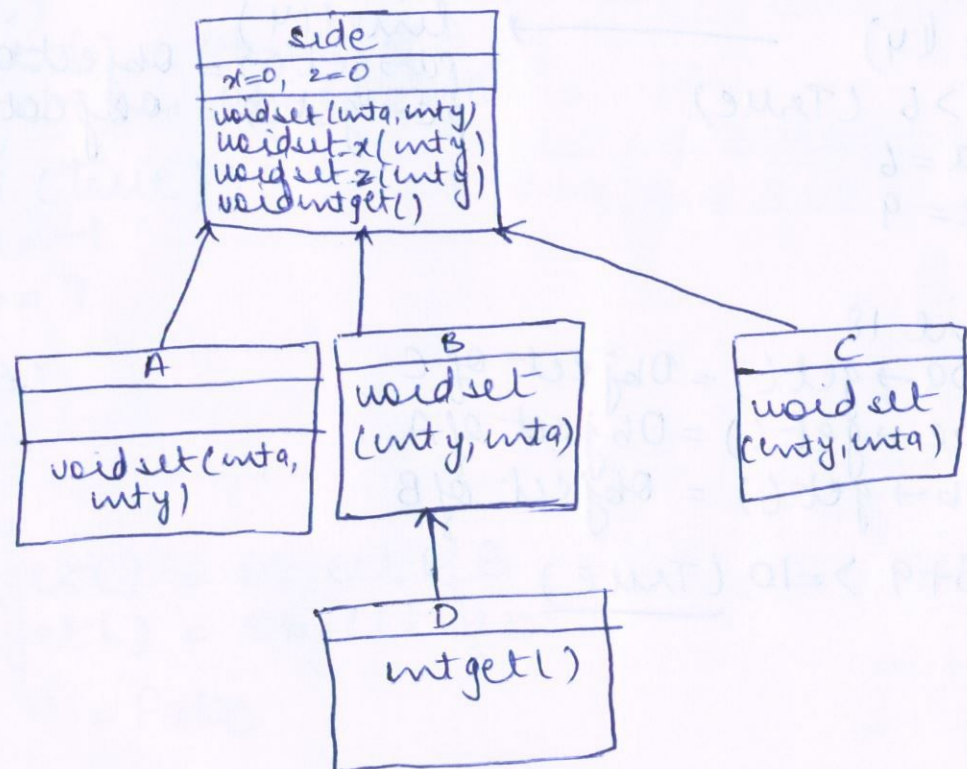 side
x=0, z=0
void set(int a, int y)
void set x (int y)
void set z (int y)
void int get()
A
void set (int a,
int y)
B
void set
(int y, int a)
C
void set
(int y, int a)
D
int get()